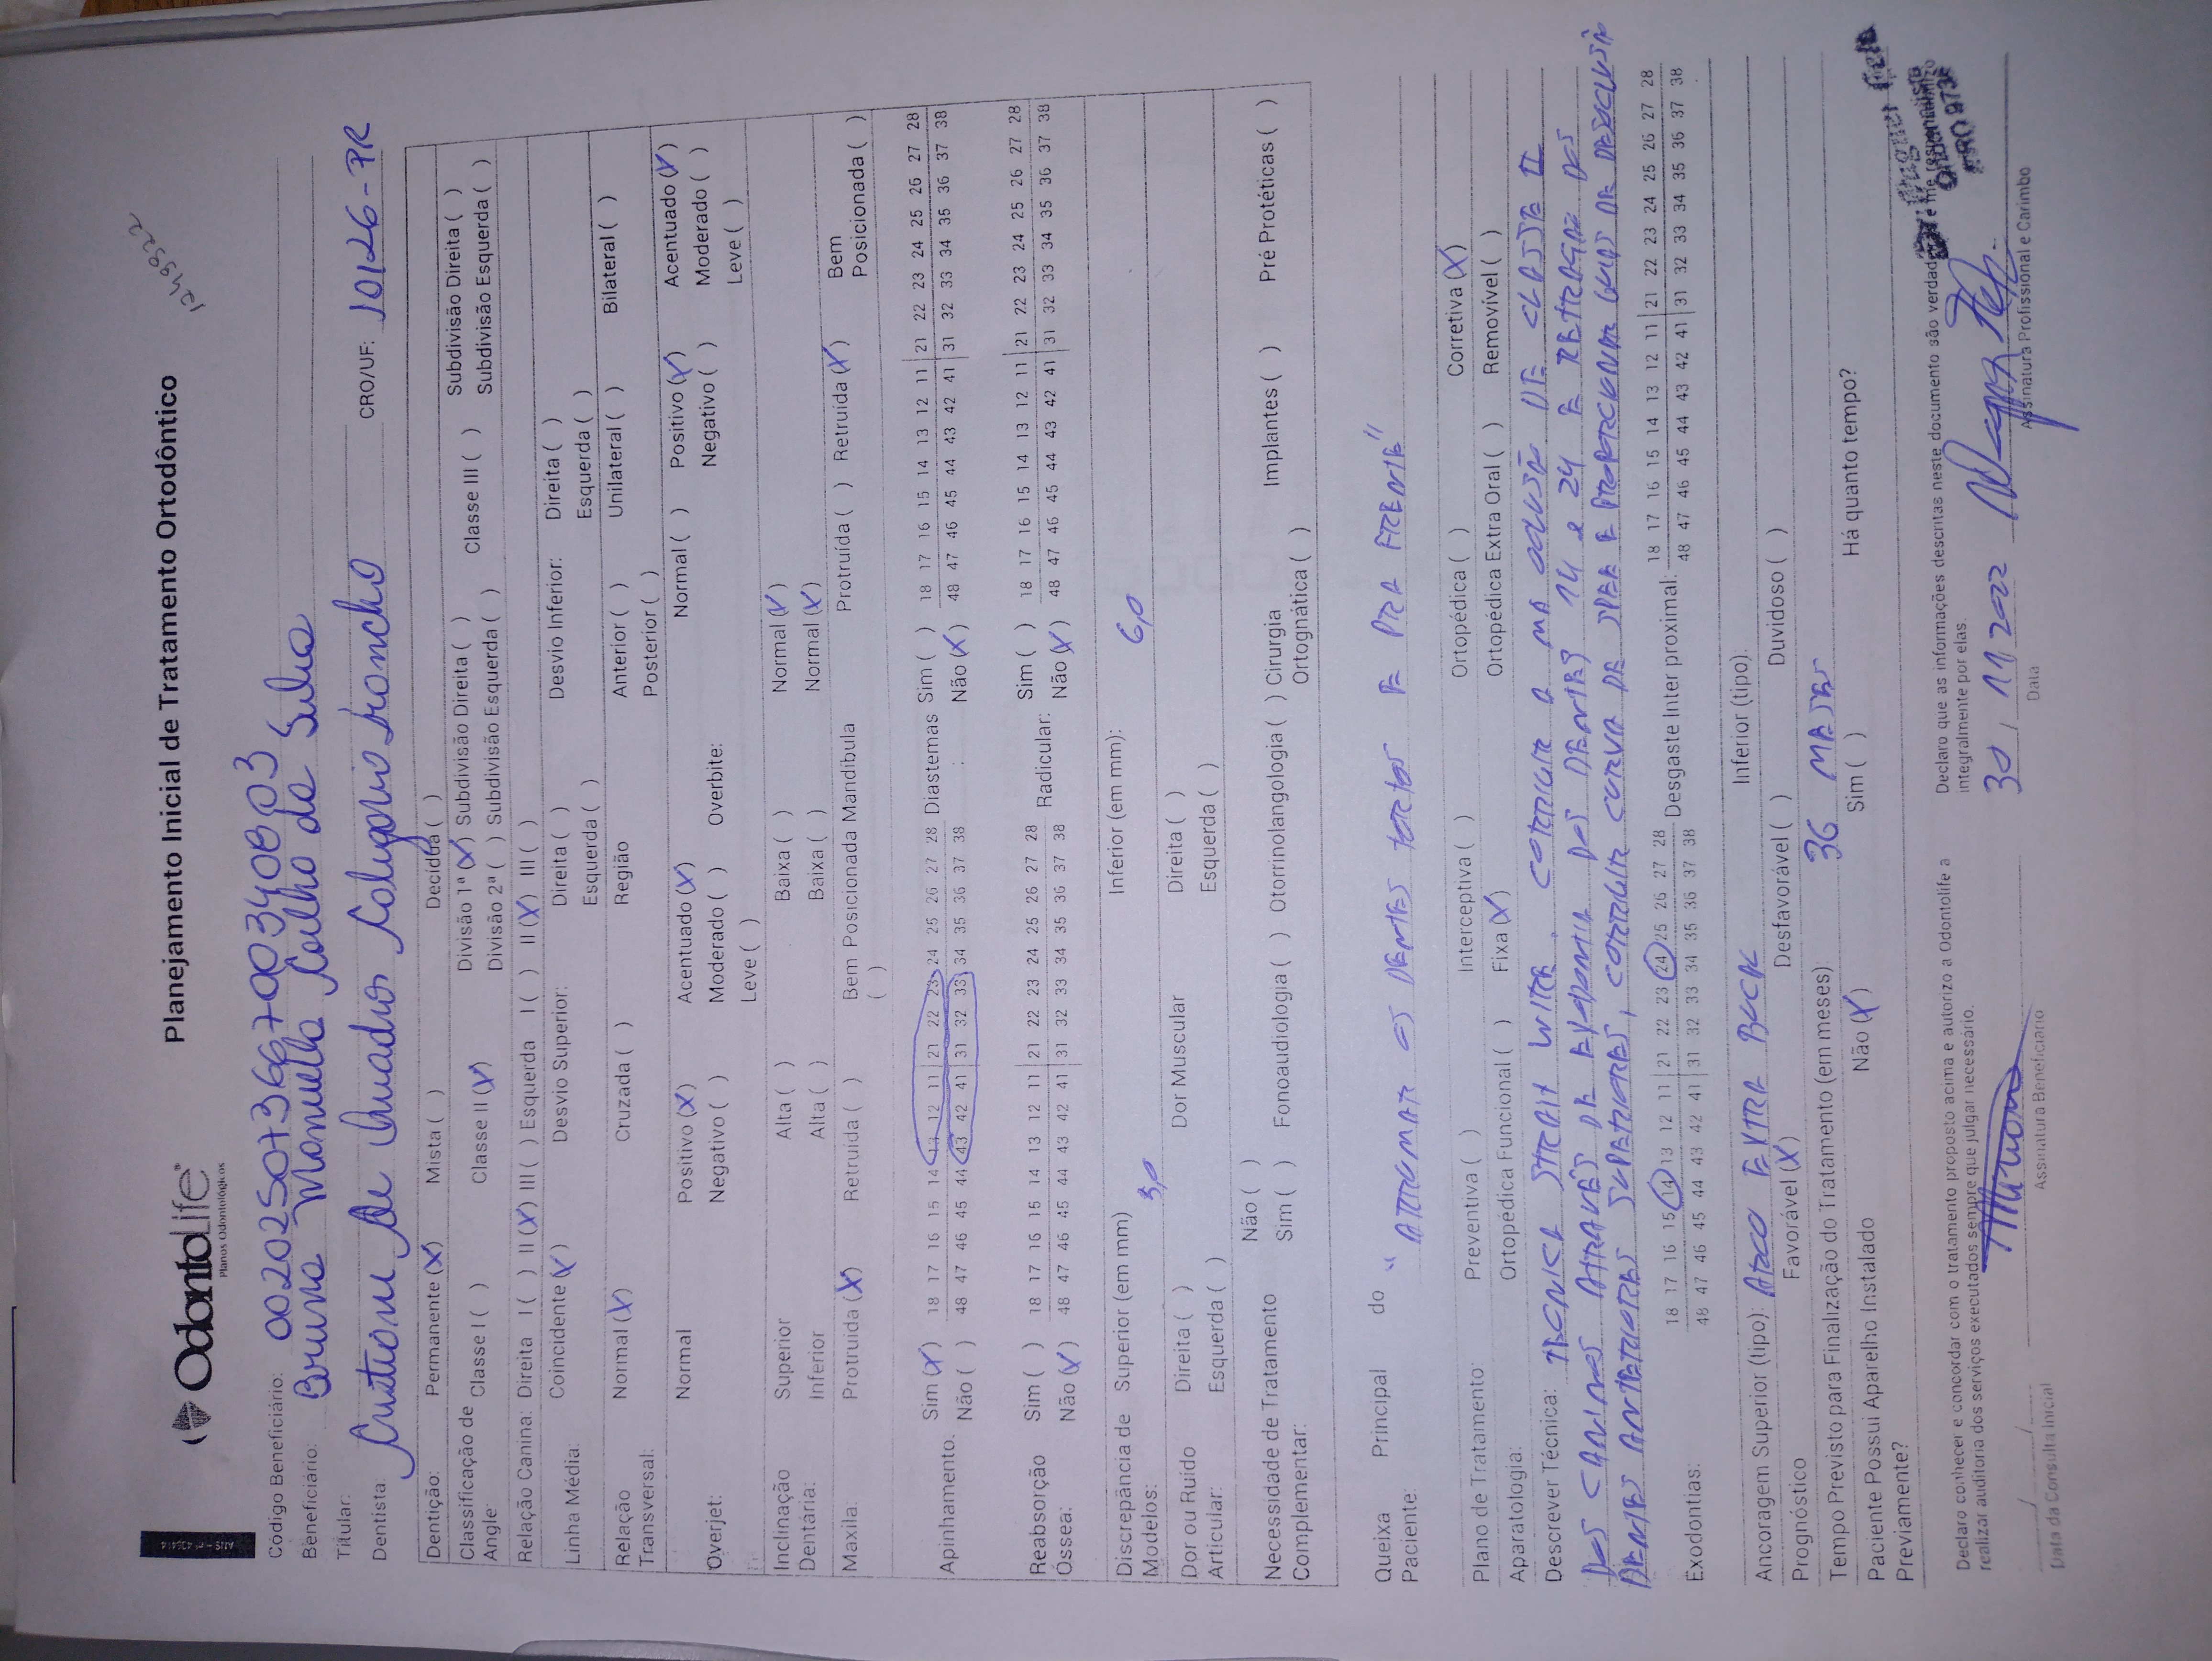 ANS - nº 406414
OdontoLife
Planos Odontológicos
Planejamento Inicial de Tratamento Ortodôntico
Código Beneficiário: 00202507366700340803
Beneficiário: Bruna Manuella Coelho da Silva
Titular:
Dentista: CRO/UF: 10126-PR
Dentição: Permanente (X) Mista ( ) Decídua ( )
Classificação de Angle: Classe I ( ) Classe II (X) Divisão 1ª (X) Subdivisão Direita ( ) Classe III ( ) Subdivisão Direita ( )
Divisão 2ª ( ) Subdivisão Esquerda ( ) Subdivisão Esquerda ( )
Relação Canina: Direita I ( ) II (X) III ( ) Esquerda I ( ) II (X) III ( )
Linha Média: Coincidente (X) Desvio Superior: Direita ( ) Desvio Inferior: Direita ( )
Esquerda ( ) Esquerda ( )
Relação Transversal: Normal (X) Cruzada ( ) Região Anterior ( ) Unilateral ( ) Bilateral ( )
Posterior ( )
Overjet: Normal Positivo (X) Acentuado (X) Overbite: Normal ( ) Positivo (X) Acentuado (X)
Negativo ( ) Moderado ( ) Negativo ( ) Moderado ( )
Leve ( ) Leve ( )
Inclinação Dentária: Superior Alta ( ) Baixa ( ) Normal (X)
Inferior Alta ( ) Baixa ( ) Normal (X)
Maxila: Protruida (X) Retruida ( ) Bem Posicionada ( ) Mandibula Protruída ( ) Retruída (X) Bem Posicionada ( )
Apinhamento. Sim (X) 18 17 16 15 14 13 12 11 | 21 22 23 24 25 26 27 28 Diastemas Sim ( ) 18 17 16 15 14 13 12 11 | 21 22 23 24 25 26 27 28
Não ( ) 48 47 46 45 44 43 42 41 | 31 32 33 34 35 36 37 38 Não (X) 48 47 46 45 44 43 42 41 | 31 32 33 34 35 36 37 38
Reabsorção Óssea: Sim ( ) 18 17 16 15 14 13 12 11 | 21 22 23 24 25 26 27 28 Radicular: Sim ( ) 18 17 16 15 14 13 12 11 | 21 22 23 24 25 26 27 28
Não (X) 48 47 46 45 44 43 42 41 | 31 32 33 34 35 36 37 38 Não (X) 48 47 46 45 44 43 42 41 | 31 32 33 34 35 36 37 38
Discrepância de Modelos: Superior (em mm) 3,0 Inferior (em mm): 6,0
Dor ou Ruído Articular: Direita ( ) Dor Muscular Direita ( )
Esquerda ( ) Esquerda ( )
Necessidade de Tratamento Complementar: Não ( )
Sim ( ) Fonoaudiologia ( ) Otorrinolangologia ( ) Cirurgia Ortognática ( ) Implantes ( ) Pré Protéticas ( )
Queixa Principal do Paciente: "ARRUMAR OS DENTES TORTOS E PRA FRENTE"
Plano de Tratamento: Preventiva ( ) Interceptiva ( ) Ortopédica ( ) Corretiva (X)
Aparatologia: Ortopédica Funcional ( ) Fixa (X) Ortopédica Extra Oral ( ) Removível ( )
Descrever Técnica: TÉCNICA STRAIT WIRE. CORRIGIR A MÁ OCLUSÃO DE CLASSE II
DOS CANINOS ATRAVÉS DE EXODONTIA DOS DENTES 14 e 24 E RETRAÇÃO DOS
DENTES ANTERIORES SUPERIORES, CORRIGIR CURVA DE SPEE E PROPORCIONAR GUIAS DE DESOCLUSÃO
Exodontias: 18 17 16 15 14 13 12 11 | 21 22 23 24 25 26 27 28 Desgaste Inter proximal: 18 17 16 15 14 13 12 11 | 21 22 23 24 25 26 27 28
48 47 46 45 44 43 42 41 | 31 32 33 34 35 36 37 38 48 47 46 45 44 43 42 41 | 31 32 33 34 35 36 37 38
Ancoragem Superior (tipo): ARCO EXTRA BUCK Inferior (tipo):
Prognóstico Favorável (X) Desfavorável ( ) Duvidoso ( )
Tempo Previsto para Finalização do Tratamento (em meses): 36 MESES
Paciente Possui Aparelho Instalado Previamente? Não (X) Sim ( ) Há quanto tempo?
Declaro conhecer e concordar com o tratamento proposto acima e autorizo a Odontolife a
realizar auditoria dos serviços executados sempre que julgar necessário.
Declaro que as informações descritas neste documento são
integralmente por elas.
30/11/2022
Data da Consulta Inicial
Assinatura Beneficiário
Data
Assinatura Profissional e Carimbo